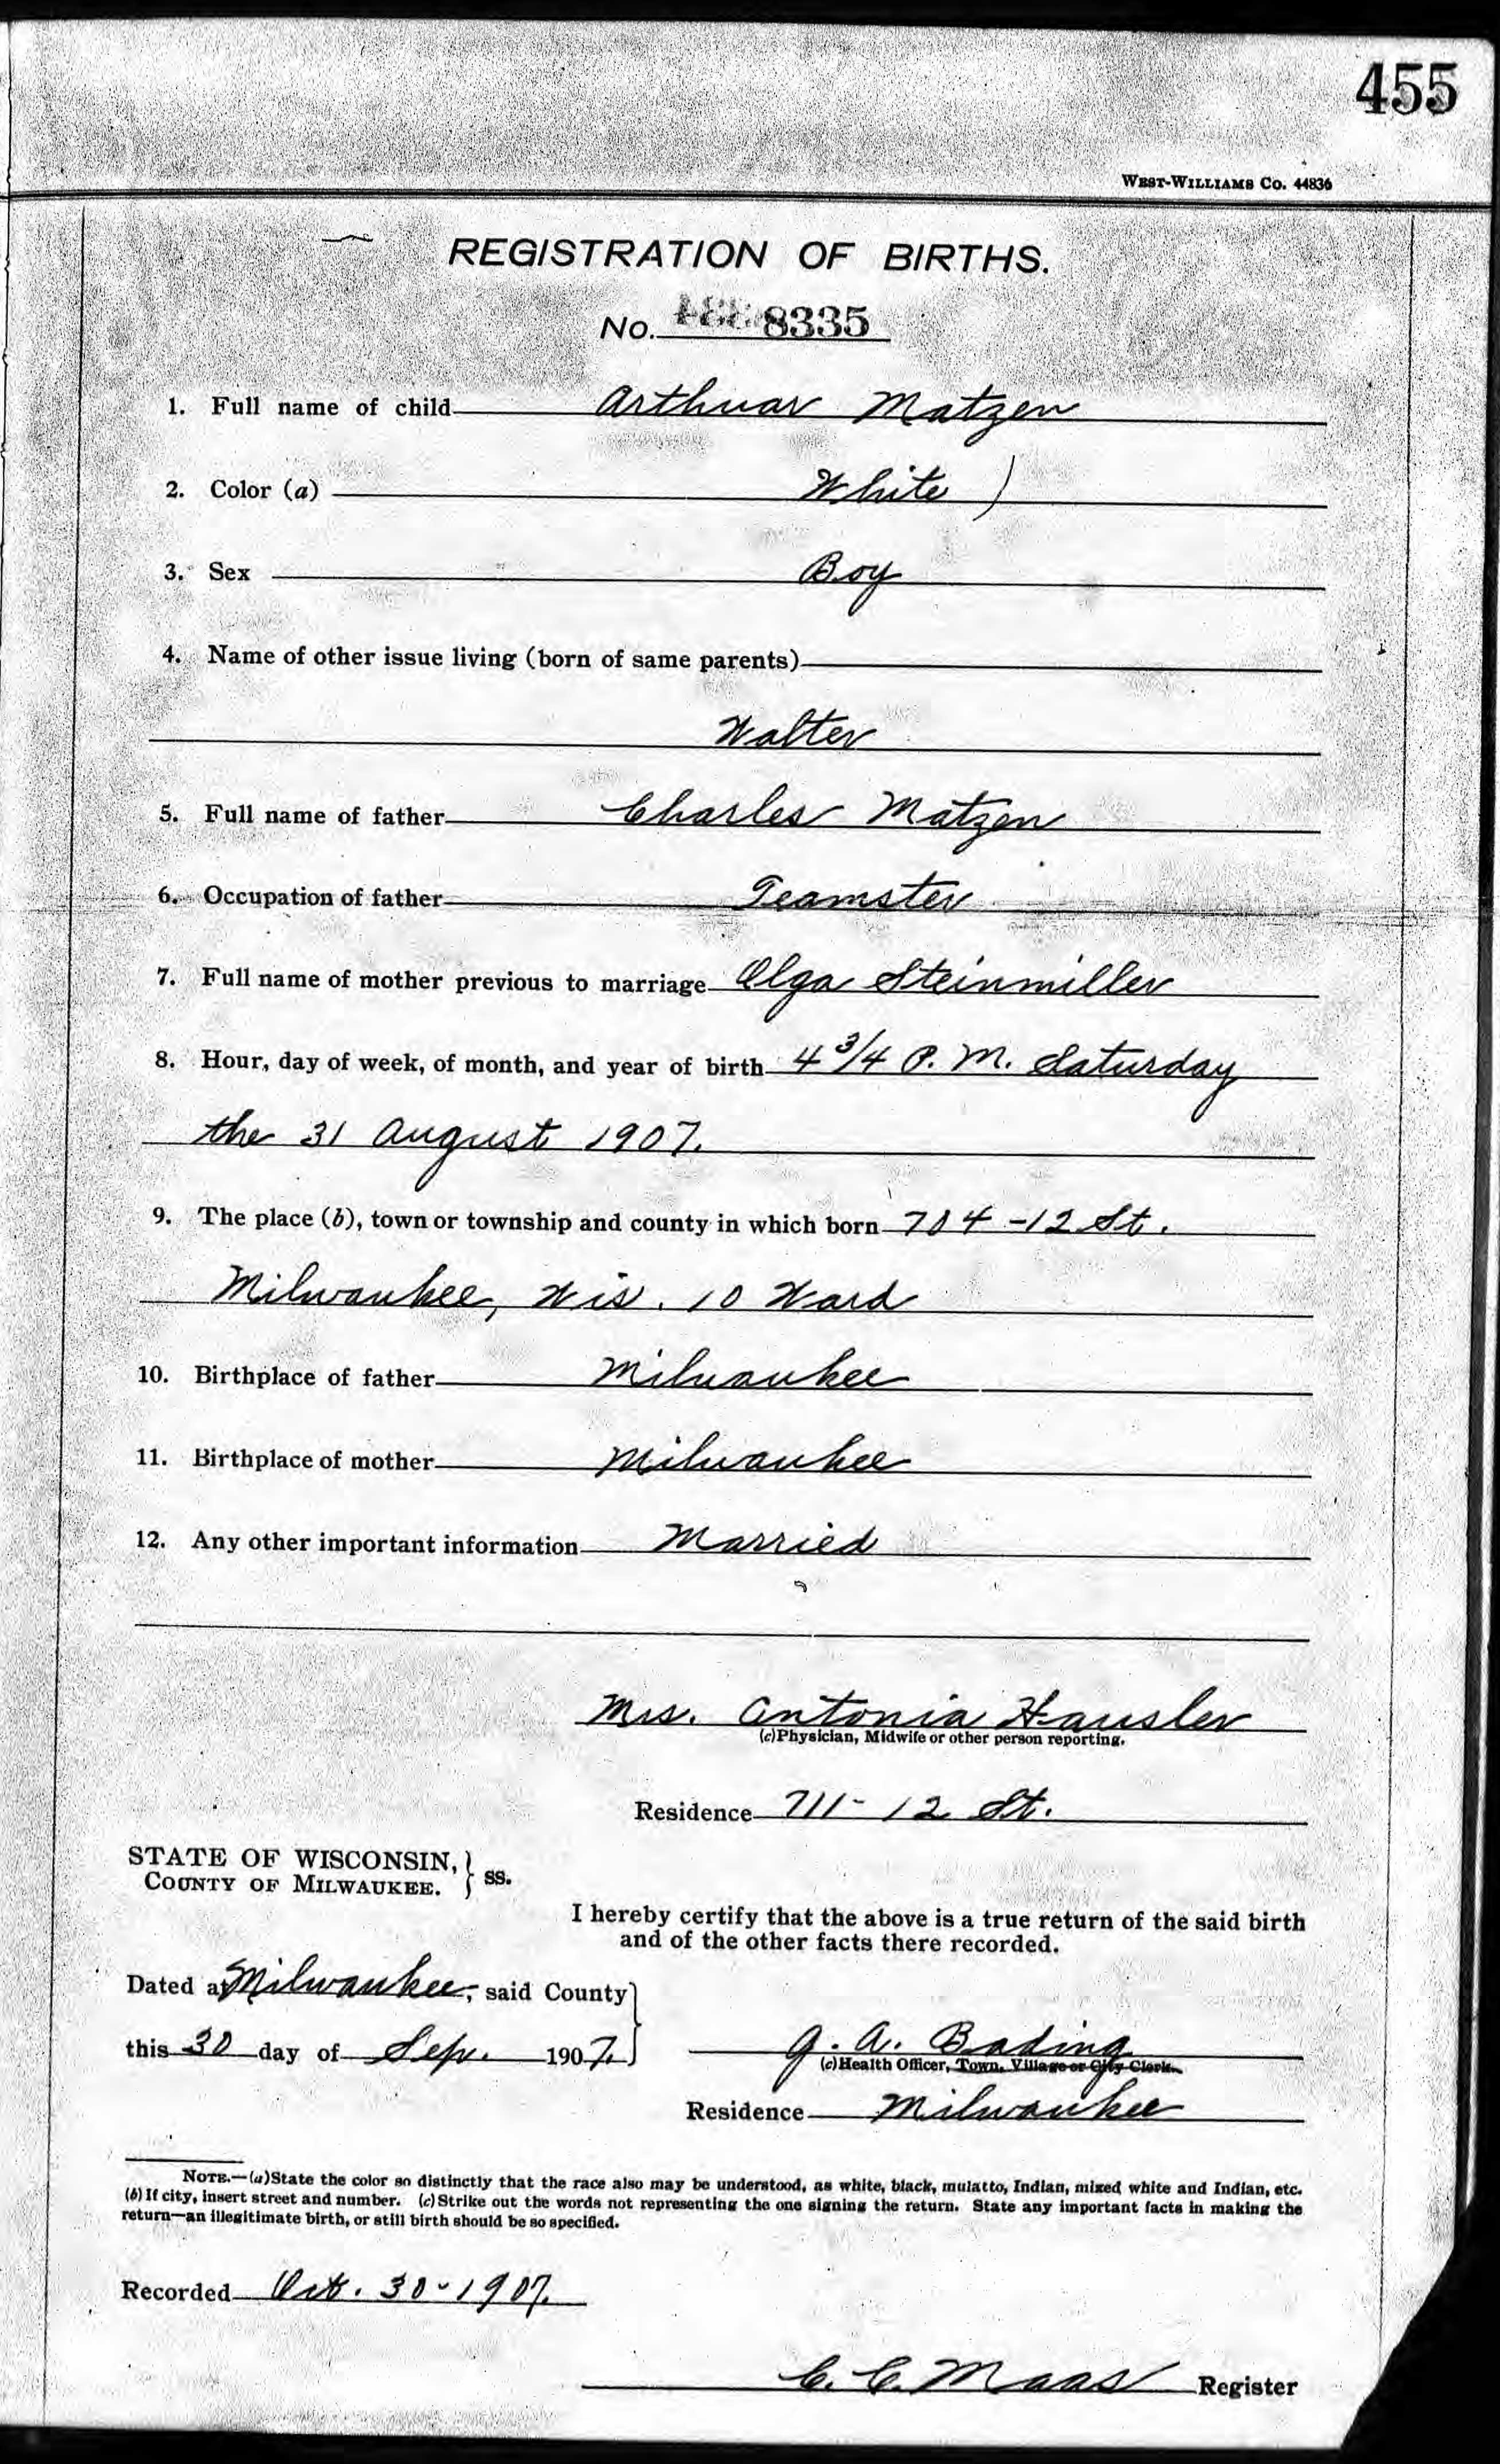 455
WEST-WILLIAMS CO. 44836
REGISTRATION OF BIRTHS.
No. 8335
1. Full name of child Arthuar Matzen
2. Color (a) White )
3. Sex Boy
4. Name of other issue living (born of same parents)
Walter
5. Full name of father Charles Matzen
6. Occupation of father Teamster
7. Full name of mother previous to marriage Olga Steinmiller
8. Hour, day of week, of month, and year of birth 4 3/4 P. M. Saturday
the 31 August 1907.
9. The place (b), town or township and county in which born 704 - 12 St.
Milwaukee, Wis. 10 Ward
10. Birthplace of father Milwaukee
11. Birthplace of mother Milwaukee
12. Any other important information Married
Mrs. Antonia Hausler
(c) Physician, Midwife or other person reporting.
Residence 711 - 12 St.
STATE OF WISCONSIN, } ss.
COUNTY OF MILWAUKEE.
I hereby certify that the above is a true return of the said birth
and of the other facts there recorded.
Dated at Milwaukee, said County
this 30 day of Sep. 1907.
G. A. Bading
(c) Health Officer, Town, Village or City Clerk.
Residence Milwaukee
NOTE.—(a) State the color so distinctly that the race also may be understood, as white, black, mulatto, Indian, mixed white and Indian, etc.
(b) If city, insert street and number. (c) Strike out the words not representing the one signing the return. State any important facts in making the
return—an illegitimate birth, or still birth should be so specified.
Recorded Oct. 30 - 1907.
C. C. Maas Register